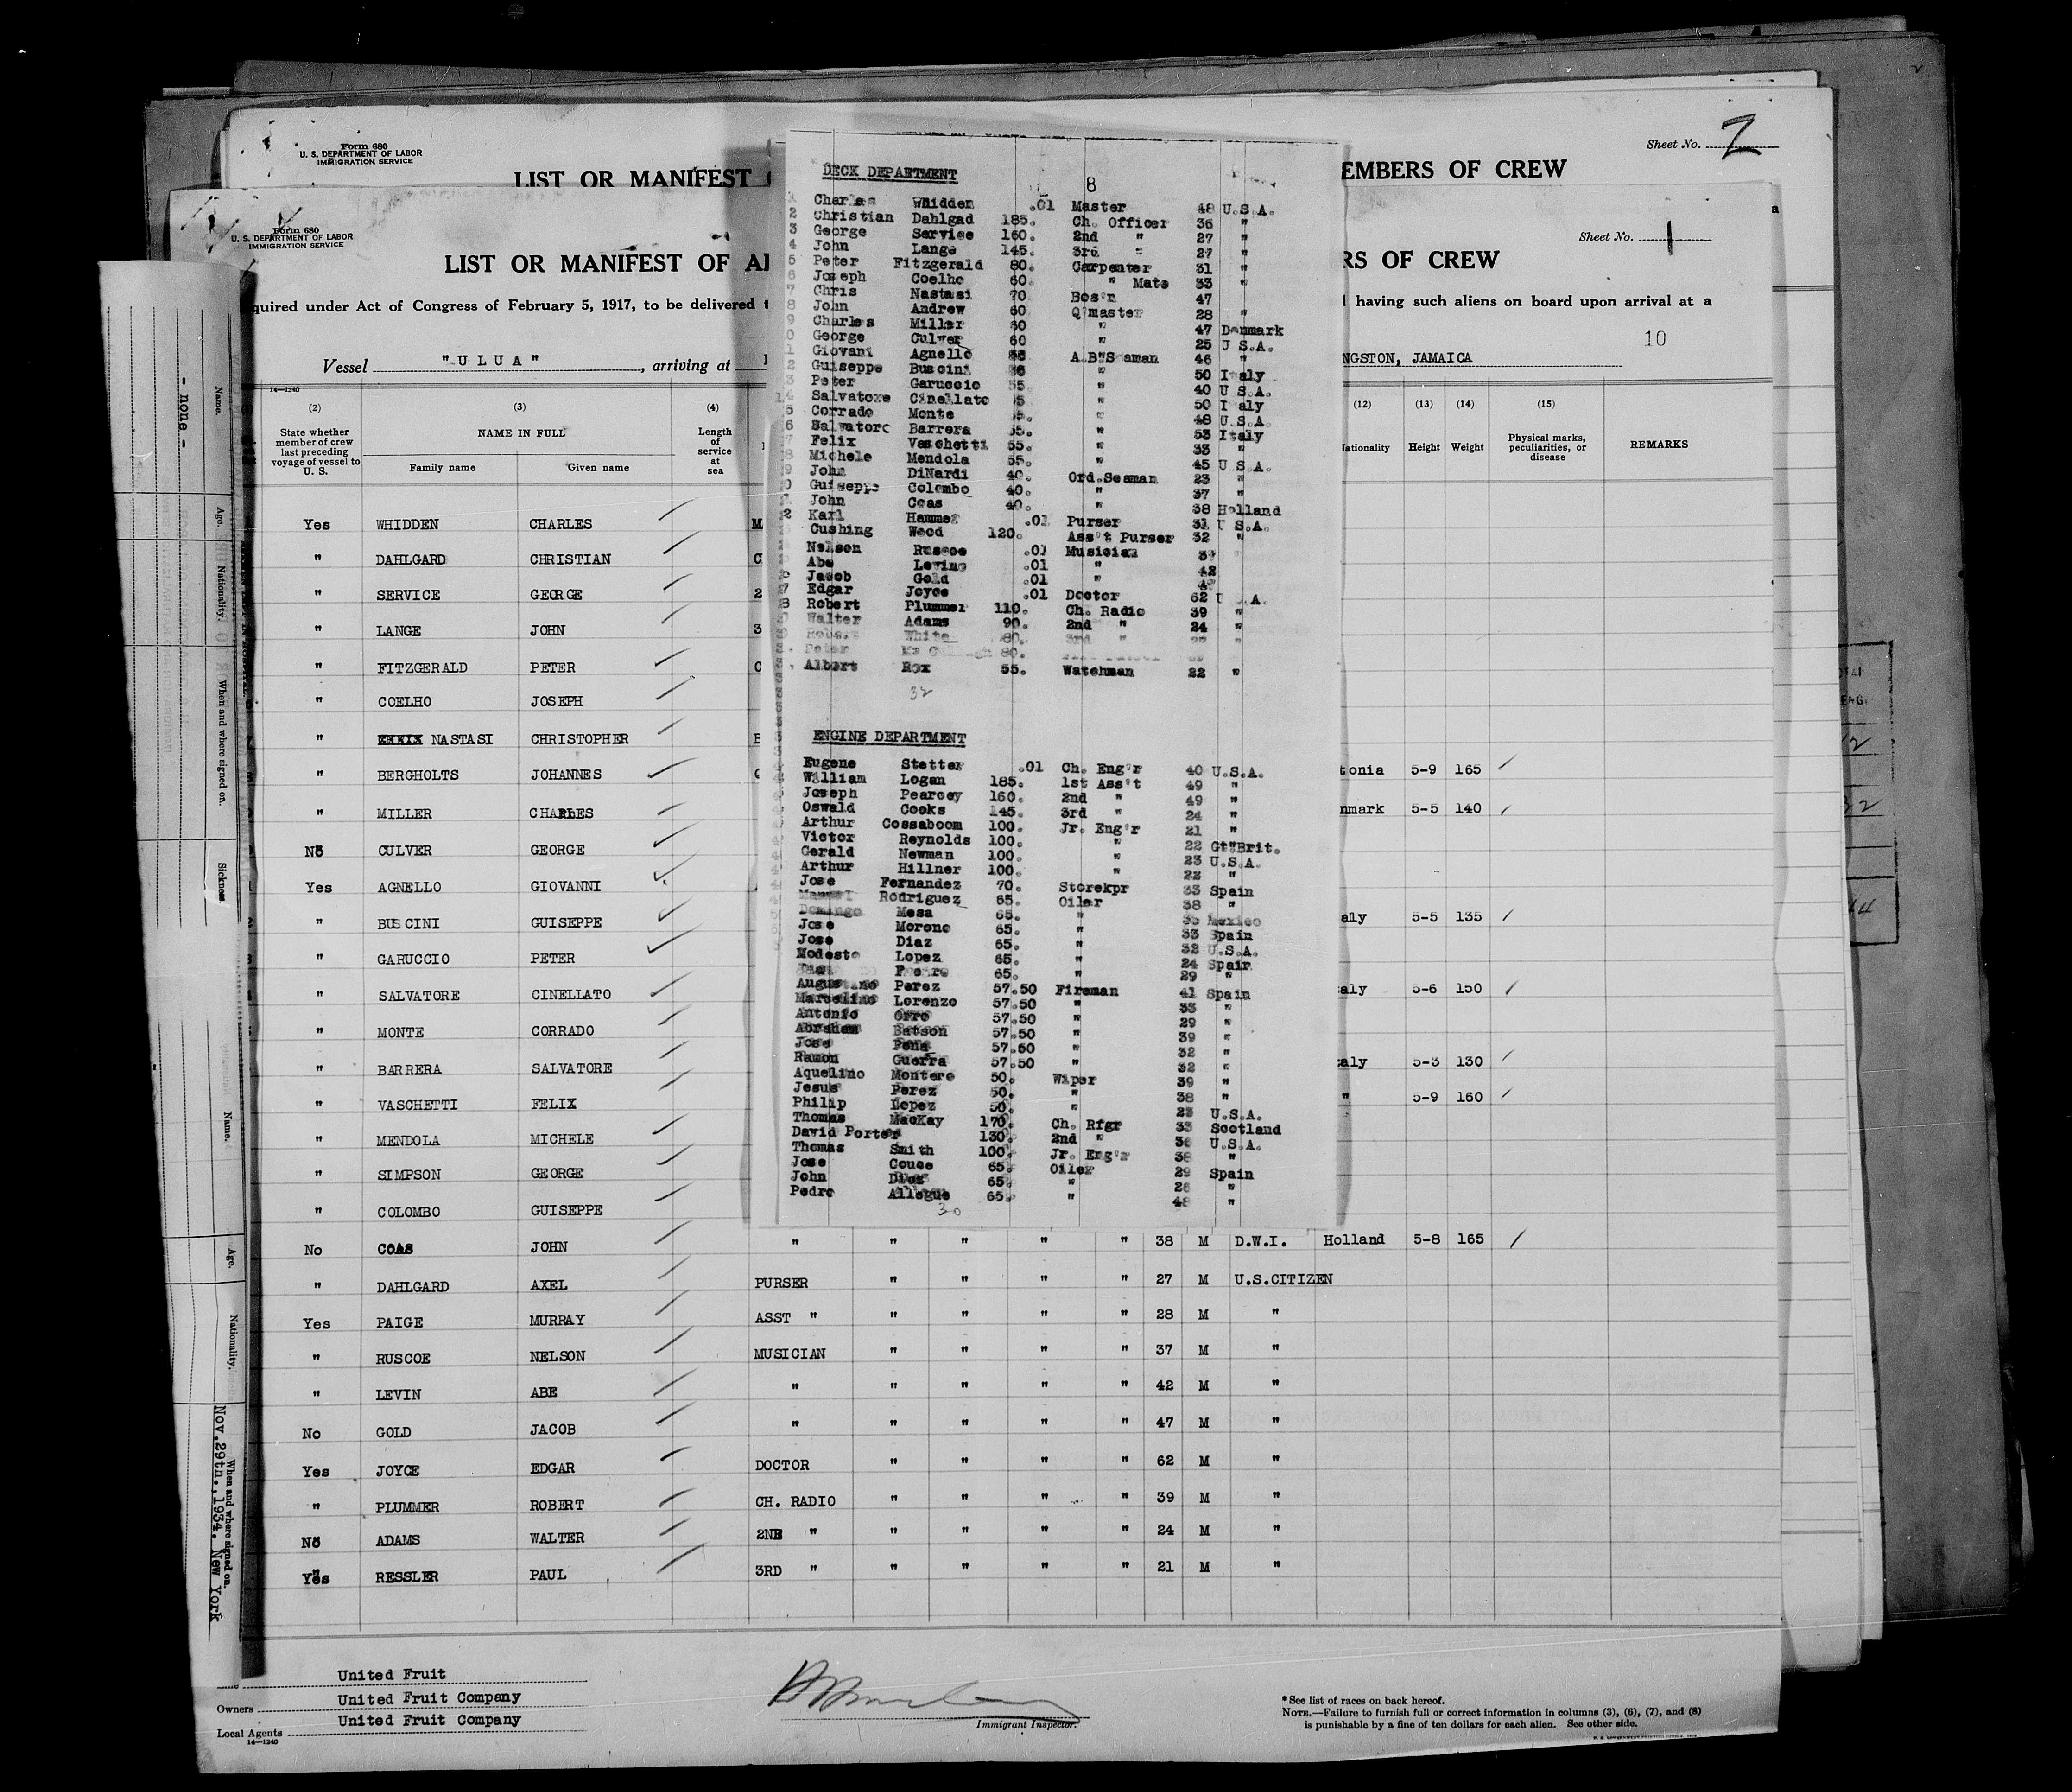 Form 680
U. S. DEPARTMENT OF LABOR
IMMIGRATION SERVICE
Sheet No. 2
LIST OR MANIFEST
EMBERS OF CREW
Form 680
U. S. DEPARTMENT OF LABOR
IMMIGRATION SERVICE
Sheet No. 1
LIST OR MANIFEST OF AL
RS OF CREW
quired under Act of Congress of February 5, 1917, to be delivered
having such aliens on board upon arrival at a
10
Vessel "ULUA", arriving at
NGSTON, JAMAICA
14—1240
(2) (3) (4) (12) (13) (14) (15)
State whether member of crew last preceding voyage of vessel to U. S.
NAME IN FULL
Family name Given name
Length of service at sea
Nationality Height Weight Physical marks, peculiarities, or disease REMARKS
Yes WHIDDEN CHARLES
" DAHLGARD CHRISTIAN
" SERVICE GEORGE
" LANGE JOHN
" FITZGERALD PETER
" COELHO JOSEPH
" NASTASI CHRISTOPHER
" BERGHOLTS JOHANNES tonia 5-9 165
" MILLER CHARLES nmark 5-5 140
No CULVER GEORGE
Yes AGNELLO GIOVANNI
" BUSCINI GUISEPPE aly 5-5 135
" GARUCCIO PETER
" SALVATORE CINELLATO aly 5-6 150
" MONTE CORRADO
" BARRERA SALVATORE aly 5-3 130
" VASCHETTI FELIX " 5-9 160
" MENDOLA MICHELE
" SIMPSON GEORGE
" COLOMBO GUISEPPE
No COAS JOHN " " " " " 38 M D.W.I. Holland 5-8 165
" DAHLGARD AXEL PURSER " " " " 27 M U.S.CITIZEN
Yes PAIGE MURRAY ASST " " " " " 28 M "
" RUSCOE NELSON MUSICIAN " " " " 37 M "
" LEVIN ABE " " " " " 42 M "
No GOLD JACOB " " " " " 47 M "
Yes JOYCE EDGAR DOCTOR " " " " 62 M "
" PLUMMER ROBERT CH. RADIO " " " " 39 M "
No ADAMS WALTER 2ND " " " " " 24 M "
Yes RESSLER PAUL 3RD " " " " " 21 M "
DECK DEPARTMENT
8
Charles Whidden .01 Master 48 U.S.A.
2 Christian Dahlgad 185. Ch. Officer 36 "
3 George Service 160. 2nd " 27 "
4 John Lange 145. 3rd " 27 "
5 Peter Fitzgerald 80. Carpenter 31 "
6 Joseph Coelho 60. " Mate 33 "
7 Chris Nastasi 70 Bos'n 47
8 John Andrew 60 Q'master 28 "
9 Charles Miller 60 " 47 Denmark
0 George Culver 60 " 25 U S.A.
1 Giovani Agnello A.B"Seaman 46 "
2 Guiseppe Buscini " 50 Italy
3 Peter Garuccio 55. " 40 U S.A.
14 Salvatore Cinellato 5. " 50 Italy
5 Corrado Monte 5. " 48 U.S.A.
6 Salvatore Barrera 55. " 53 Italy
7 Felix Vaschetti 55. " 33 "
8 Michele Mendola 55. " 45 U.S.A.
9 John DiNardi 40. Ord.Seaman 23 "
0 Guiseppe Colombo 40. " 37 "
John Coas 40. " 38 Holland
2 Karl Hammer .01 Purser 31 U S.A.
Cushing Wood 120. Ass't Purser 32 "
Nelson Ruscoe .01 Musician
Abe Levine .01 " 42
Jacob Gold .01 "
7 Edgar Joyce .01 Doctor 62 U .A.
8 Robert Plummer 110. Ch. Radio 39 "
Walter Adams 90. 2nd " 24 "
Robert White 80. 3rd "
Peter 80.
Albert Rox 55. Watchman 22 "
32
ENGINE DEPARTMENT
Eugene Stetter .01 Ch. Eng'r 40 U.S.A.
William Logan 185. 1st Ass't 49 "
Joseph Pearcey 160. 2nd " 49 "
Oswald Cooks 145. 3rd " 24 "
Arthur Cossaboom 100. Jr. Eng'r 21 "
Victor Reynolds 100. " 22 Gt"Brit.
Gerald Newman 100. " 23 U.S.A.
Arthur Hillner 100. " 22 "
Jose Fernandez 70. Storekpr 33 Spain
Manuel Rodriguez 65. Oiler 38 "
Domingo Mesa 65. " 35 Mexico
Jose Moreno 65. " 33 Spain
Jose Diaz 65. " 32 U.S.A.
Modesto Lopez 65. " 24 Spain
65. " 29 "
Augustino Perez 57.50 Fireman 41 Spain
Marcelino Lorenzo 57.50 " 33 "
Antonio Orro 57.50 " 29 "
Abraham Batson 57.50 " 39 "
Jose Pena 57.50 " 32 "
Ramon Guerra 57.50 " 32 "
Aquelino Montero 50. Wiper 39 "
Jesus Perez 50. " 38 "
Philip Lopez 50. " 23 U.S.A.
Thomas MacKay 170. Ch. Rfgr 33 Scotland
David Porter 130. 2nd " 36 U.S.A.
Thomas Smith 100. Jr. Eng'r 38 "
Jose Couce 65. Oiler 29 Spain
John Dies 65. " 26 "
Pedro Allegue 65. " 48 "
30
Name.
- none -
Age.
Nationality.
When and where signed on.
Sickness
Name.
Age.
Nationality.
When and where signed on.
Nov.29th.,1934. New York
United Fruit
Owners United Fruit Company
Local Agents United Fruit Company
14—1240
Immigrant Inspector.
*See list of races on back hereof.
NOTE.—Failure to furnish full or correct information in columns (3), (6), (7), and (8)
is punishable by a fine of ten dollars for each alien. See other side.